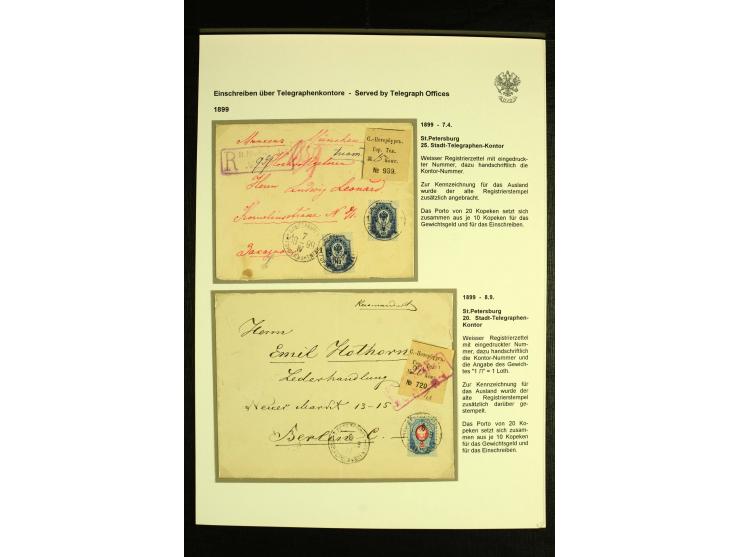 Einschreiben über Telegraphenkontore - Served by Telegraph Offices
1899
1899 - 7.4.
St.Petersburg
25. Stadt-Telegraphen-Kontor
Weisser Registrierzettel mit eingedruck-
ter Nummer, dazu handschriftlich die
Kontor-Nummer.
Zur Kennzeichnung für das Ausland
wurde der alte Registrierstempel
zusätzlich angebracht.
Das Porto von 20 Kopeken setzt sich
zusammen aus je 10 Kopeken für das
Gewichtsgeld und für das Einschreiben.
München
С.-Петербургъ.
Гор. Тел.
№ 939.
R
Herrn Ludwig Leonard
1899 - 8.9.
St.Petersburg
20. Stadt-Telegraphen-
Kontor
Weisser Registrierzettel
mit eingedruckter Num-
mer, dazu handschriftlich
die Kontor-Nummer und
die Angabe des Gewich-
tes "1 Л" = 1 Loth.
Zur Kennzeichnung für
das Ausland wurde der
alte Registrierstempel
zusätzlich darüber ge-
stempelt.
Das Porto von 20 Ko-
peken setzt sich zusam-
men aus je 10 Kopeken
für das Gewichtsgeld und
für das Einschreiben.
Herrn
Emil Hothorn
Lederhandlung
Neuer Markt 13-15
Berlin C.
С.-Петербургъ.
№ 720